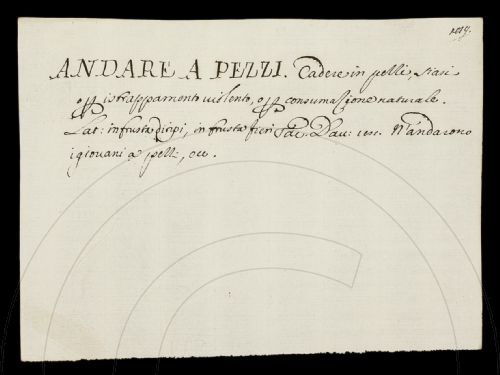 ANDARE A PEZZI. Cadere in pezzi, siasi
opp istrappamento violento, opp consumazione naturale.
Lat: in frusta diripi, in frusta fieri Tac. Dav: N'andarono
i giovani a pezzi, ecc.